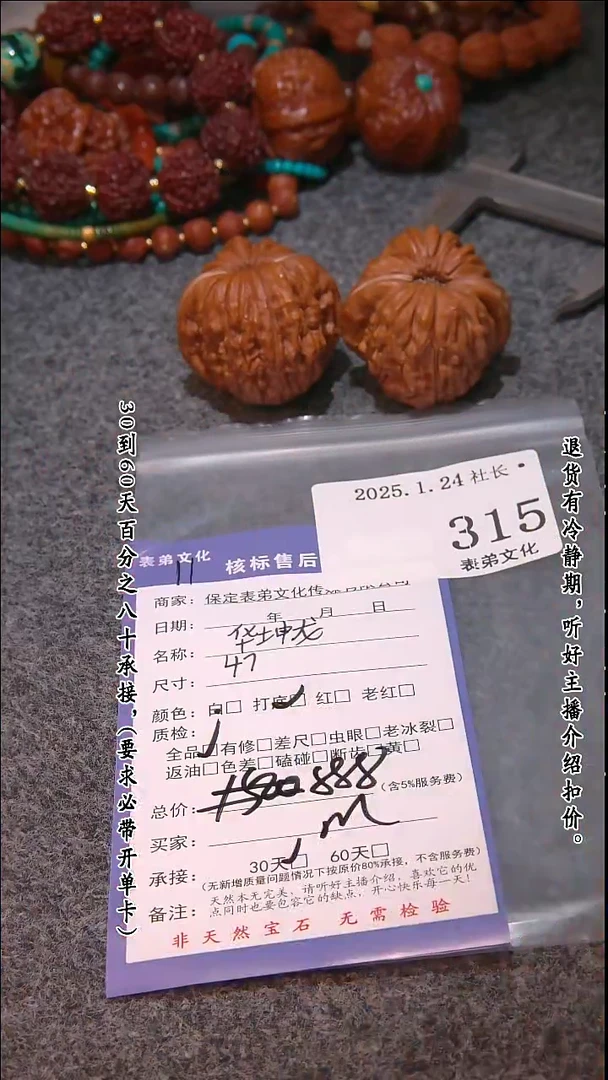 30到60天百分之八十承接，(要求必带开单卡)
退货有冷静期，听好主播介绍扣价。
2025.1.24 社长·
315
表弟文化
表弟文化 核标售后
商家：保定表弟文化传媒有限公司
日期： 年 月 日
名称：华址申龙
尺寸：47
颜色：白□ 打底□ 红□ 老红□
质检：
全品□有修□差尺□虫眼□老冰裂□
返油□色差□磕碰□断齿□黄□
总价：1500 888 (含5%服务费)
买家：m
承接：30天□ 60天□
(无新增质量问题情况下按原价80%承接，不含服务费)
备注：天然本无完美，请听好主播介绍，喜欢它的优
点同时也要包容它的缺点，开心快乐每一天！
非天然宝石 无需检验